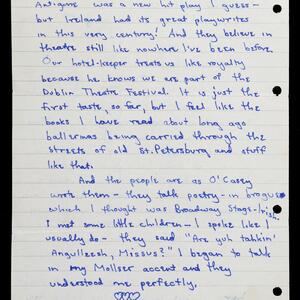 Antigone was a new hit play I guess-
but Ireland had its great playwrites
in this very century! And they believe in
theatre still like nowhere I've been before.
Our hotel-keeper treats us like royalty
because he knows we are part of the
Dublin Theatre Festival. It is just the
first taste, so far, but I feel like the
books I have read about long ago
ballerinas being carried through the
streets of old St. Petersburg and stuff
like that.
And the people are as O'Casey
wrote them - they talk poetry - in brogue
which I thought was Broadway Stage-Irish.
I met some little children - I spoke like I
usually do - they said "Are yuh talkin'
Angulleesh, Missus?" I began to talk
in my Mollser accent and they
understood me perfectly.